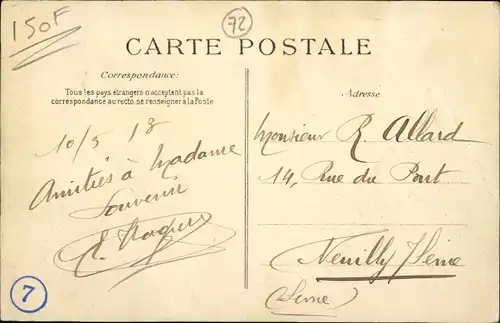 150F
72
CARTE POSTALE
Correspondance:
Tous les pays étrangers n'acceptent pas la
correspondance au recto, se renseigner à la Poste
Adresse
10/5 13
Amitiés à Madame
Souvenir
Monsieur R. Allard
14, Rue du Pont
Neuilly s/Seine
(Seine)
7